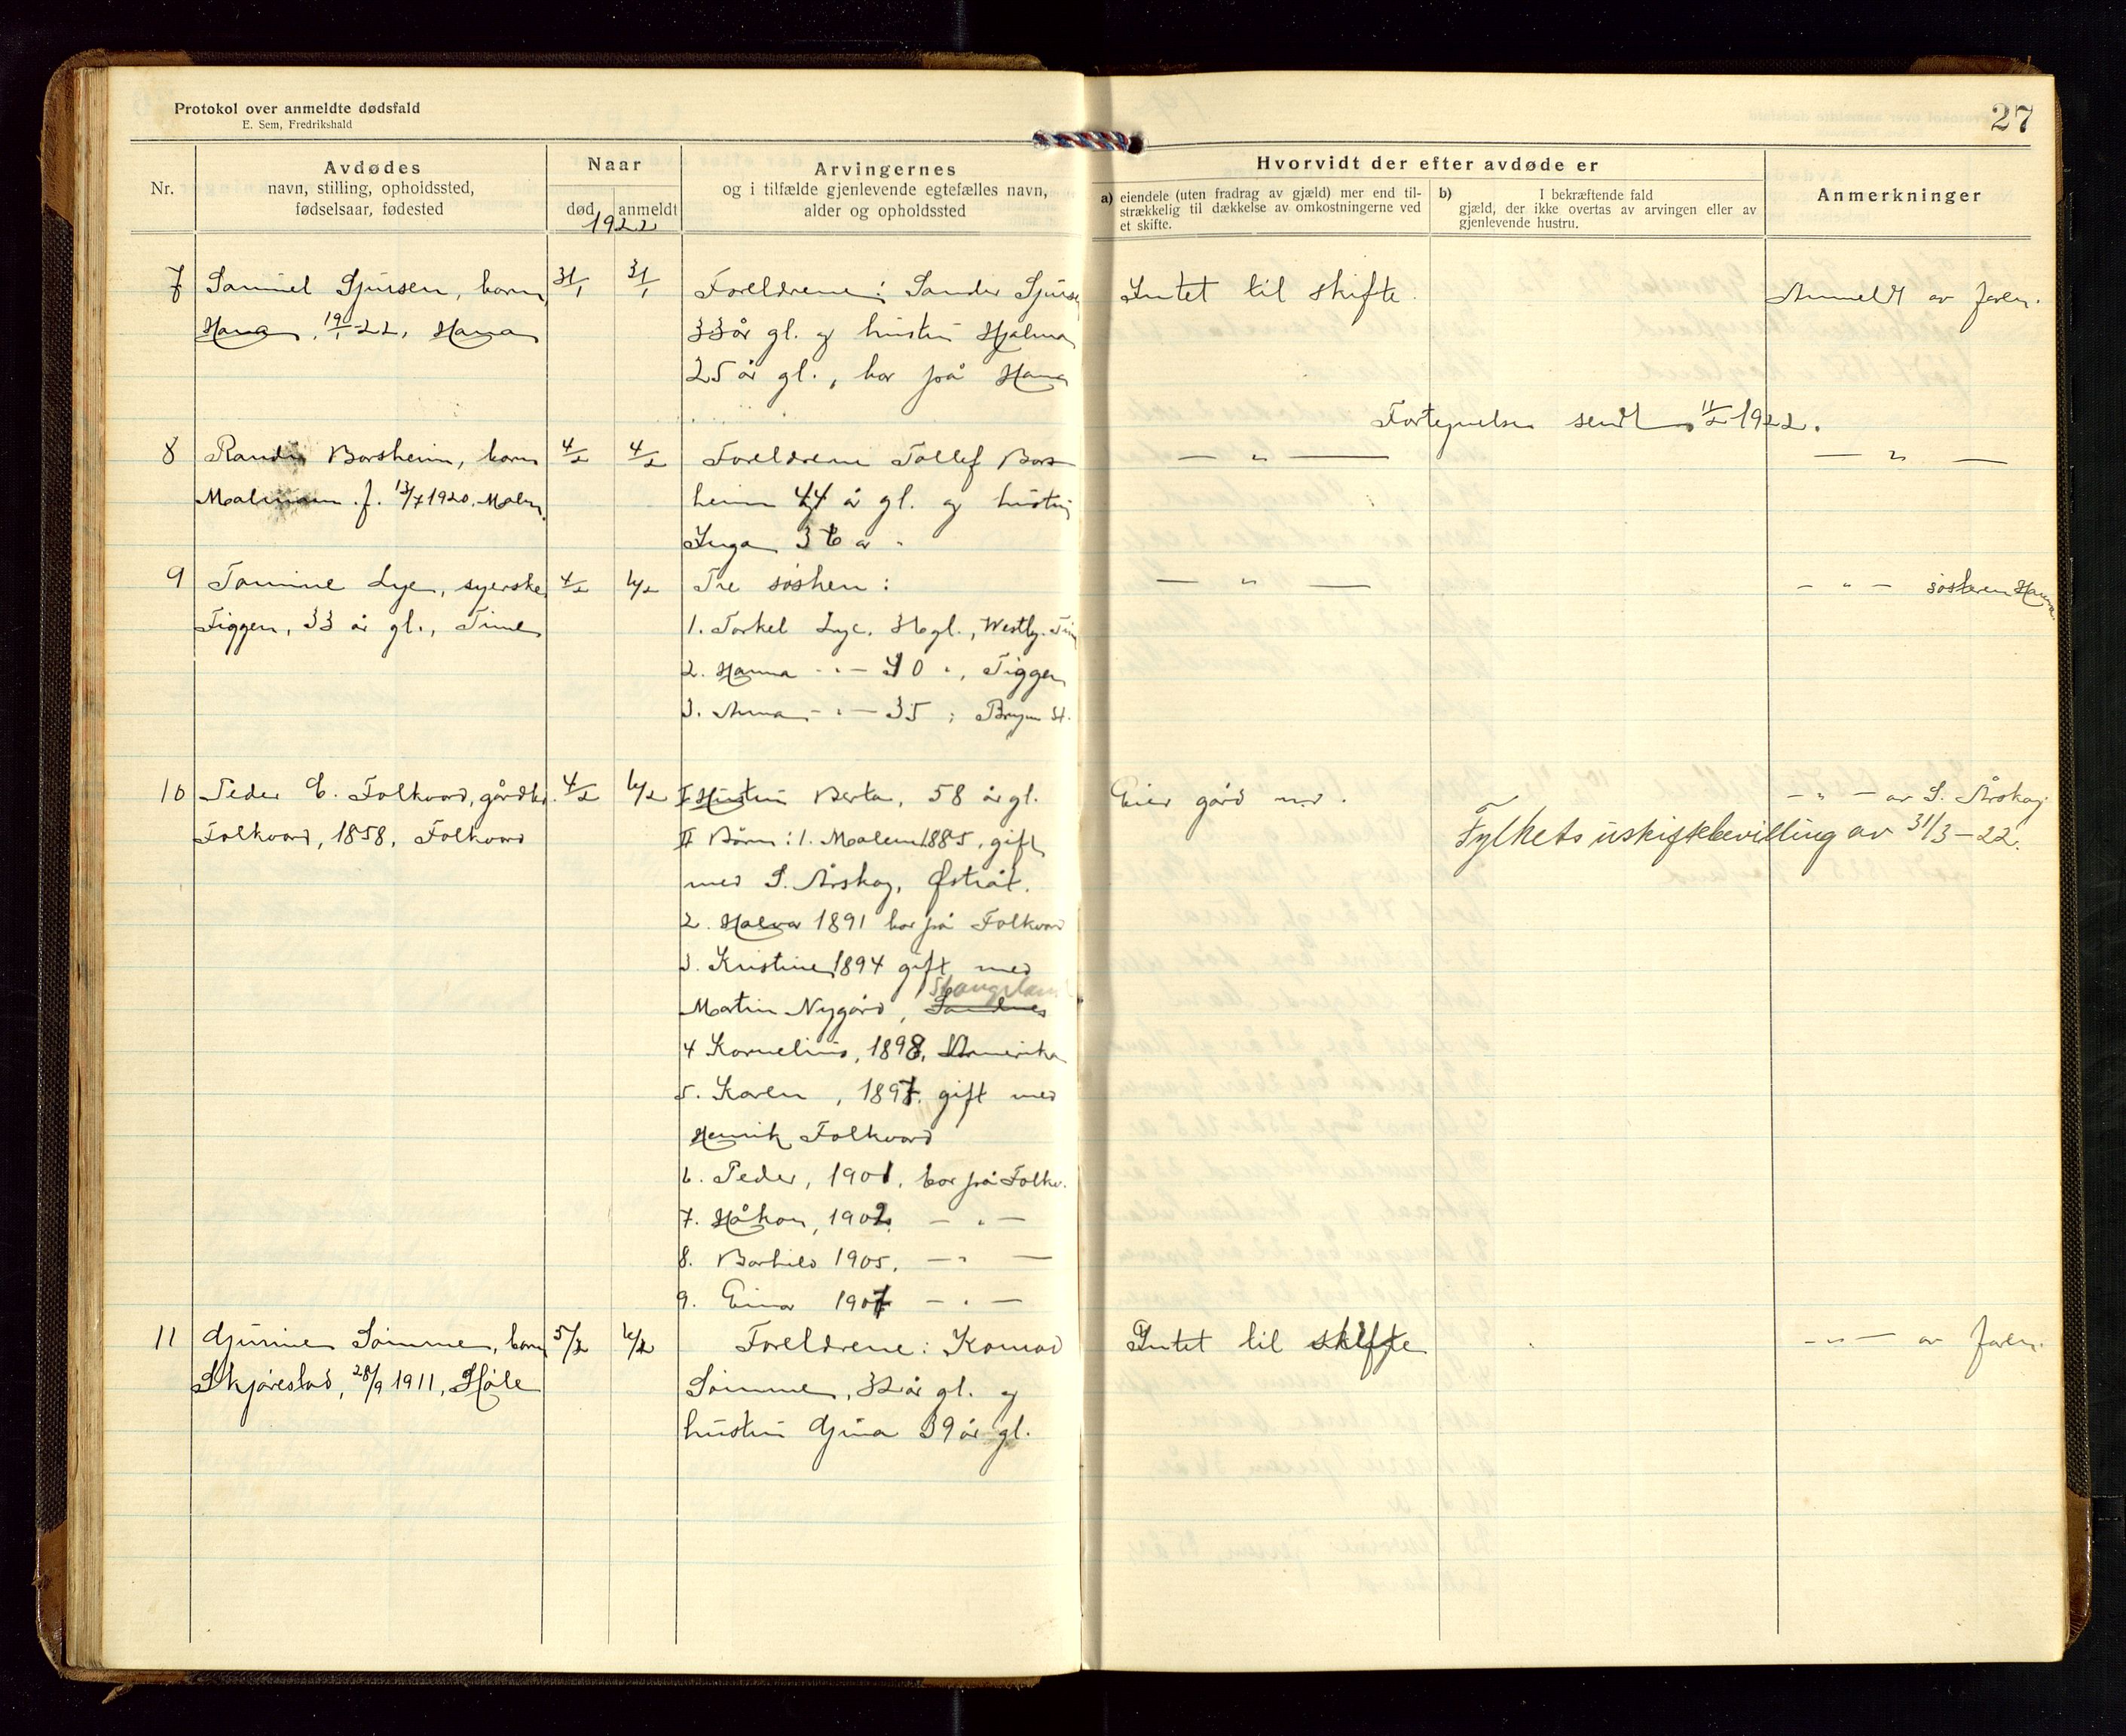 Protokol over anmeldte dødsfald
E. Sem, Fredrikshald
27
Nr.
Avdødes
navn, stilling, opholdssted,
fødselsaar, fødested
Naar
død
anmeldt
1922
Arvingernes
og i tilfælde gjenlevende egtefælles navn,
alder og opholdssted
Hvorvidt der efter avdøde er
a) eiendele (uten fradrag av gjæld) mer end til-
strækkelig til dækkelse av omkostningerne ved
et skifte.
b) I bekræftende fald
gjæld, der ikke overtas av arvingen eller av
gjenlevende hustru.
Anmerkninger
7 Samuel Sjursen, barn 31/1 31/1 Foreldrene: Sander Sjurse Intet til skifte. Anmeldt av faren.
Hana, 19/1-22, Hana 33 år gl. og hustru Hjalma
25 år gl., bor på Hana
Fortegnelse sendt 11/2 1922.
8 Randi Borsheim, barn 4/2 4/2 Foreldrene Tollef Bors — " — — " —
Malmam. f. 13/7 1920. Malm. heim 44 år gl. og hustru
Inga 36 år "
9 Tomine Lye, syerske 4/2 6/2 Tre søsken: — " — — " — søsteren Hanna
Figgen, 33 år gl., Time 1. Torkel Lye, 36 gl., Westly. Tim
2. Hanna — " — 40 ", Figgen
3. Anna — " — 35 ; Bryne St.
10 Peder E. Folkvord, gårdbr. 4/2 6/2 I Hustru Berta, 58 år gl. Eier gård m.v. — " — av S. Årskog
Folkvord, 1858, Folkvord II Børn: 1. Malene 1885, gift Fylkets uskiftebevilling av 31/3-22.
med S. Årskog, Østråt.
2. Halvar 1891 bor på Folkvord
3. Kristine 1894 gift med
Stangeland
Martin Nygård, Sandnes
4 Kornelius, 1898, Amerika
5. Karen, 1897. gift med
Henrik Folkvord
6. Peder, 1901, bor på Folkv.
7. Håkon, 1902. — " —
8. Borhild 1905. — " —
9. Einar 1907 — " —
11 Gjurine Sømme, barn 5/2 6/2 Foreldrene: Konrad Intet til skifte — " — av faren.
Skjørestad, 28/9 1911, Høle Sømme, 32 år gl. og
hustru Gjina 39 år gl.